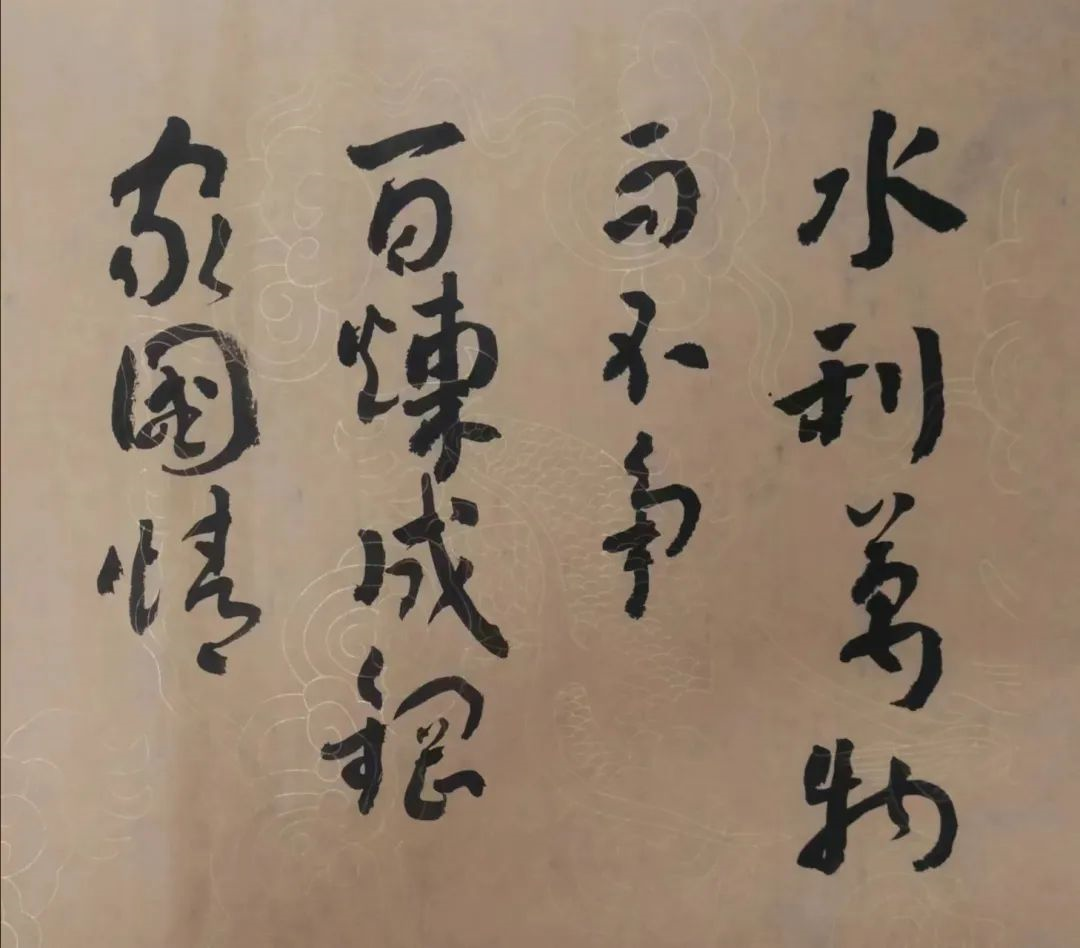 水利萬物
而不争
百煉成鋼
家國情